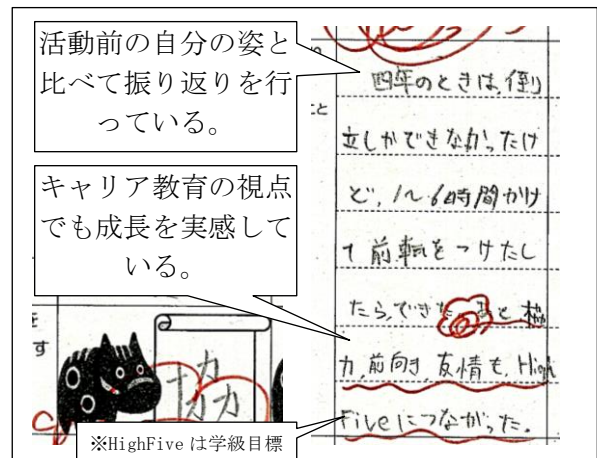 活動前の自分の姿と
比べて振り返りを行
っている。
キャリア教育の視点
でも成長を実感して
いる。
協
※HighFive は学級目標
四年のときは、倒
立しかできなかったけ
ど、1〜6時間かけ
て前転をつけたし
たら、できた。あと、協
力、前向き、友情も、High
Fiveにつながった。